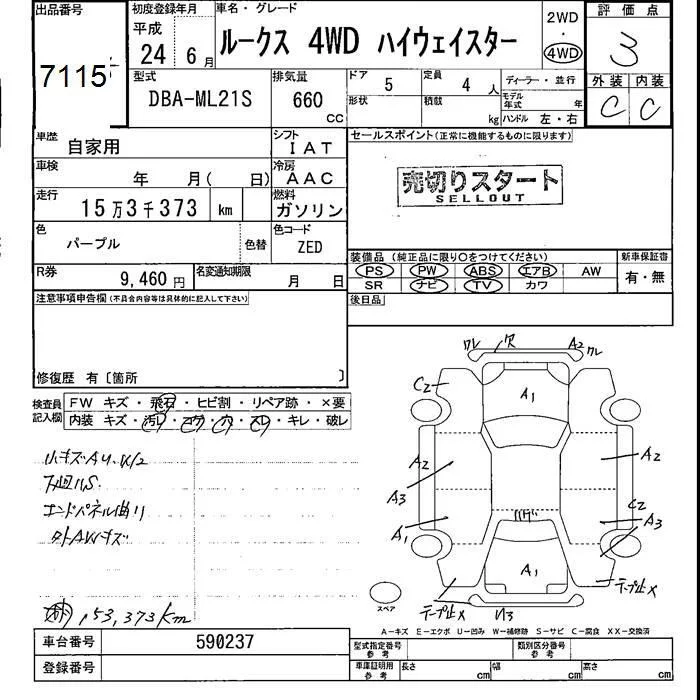 出品番号 初度登録年月 車名・グレード 2WD 評価点
平成
7115 24 6月 ルークス 4WD ハイウェイスター 4WD 3
型式 排気量 ドア 5 定員 4人 ディーラー・並行 外装 内装
DBA-ML21S 660 CC 形状 積載 kg モデル年式 年 C C
ハンドル 左・右
車歴 自家用 シフト IAT セールスポイント(正常に機能するものに限ります)
車検 年 月( 日) 冷房 AAC 売切りスタート
SELLOUT
走行 15万3千373 km 燃料 ガソリン
色 パープル 色替 色コード ZED
装備品(純正品に限り○をつけてください) 新車保証書
R券 9,460円 名変通知期限 月 日 PS PW ABS エアB AW 有・無
SR ナビ TV カワ
注意事項申告欄(不具合内容等は具体的に記入して下さい) 後日品
修復歴 有〔箇所 〕
検査員記入欄 FW キズ・飛石・ヒビ割・リペア跡・×要
内装 キズ・汚レ・コゲ・穴・スレ・キレ・破レ
ワレ 穴 A2 ワレ
C2 A1
小キズAU.W/2 A2 A2
下廻りS A3 C2
エンドパネル曲り A1 A3
外AWキズ ハゲ
A1
テープ止X W3 テープ止X
スペア
153,373km
A-キズ E-エクボ U-凹み W-補修跡 S-サビ C-腐食 XX-交換済
車台番号 590237 型式指定番号 参考 類別区分番号 参考
登録番号 車庫証明用 参考 長さ cm 幅 cm 高さ cm